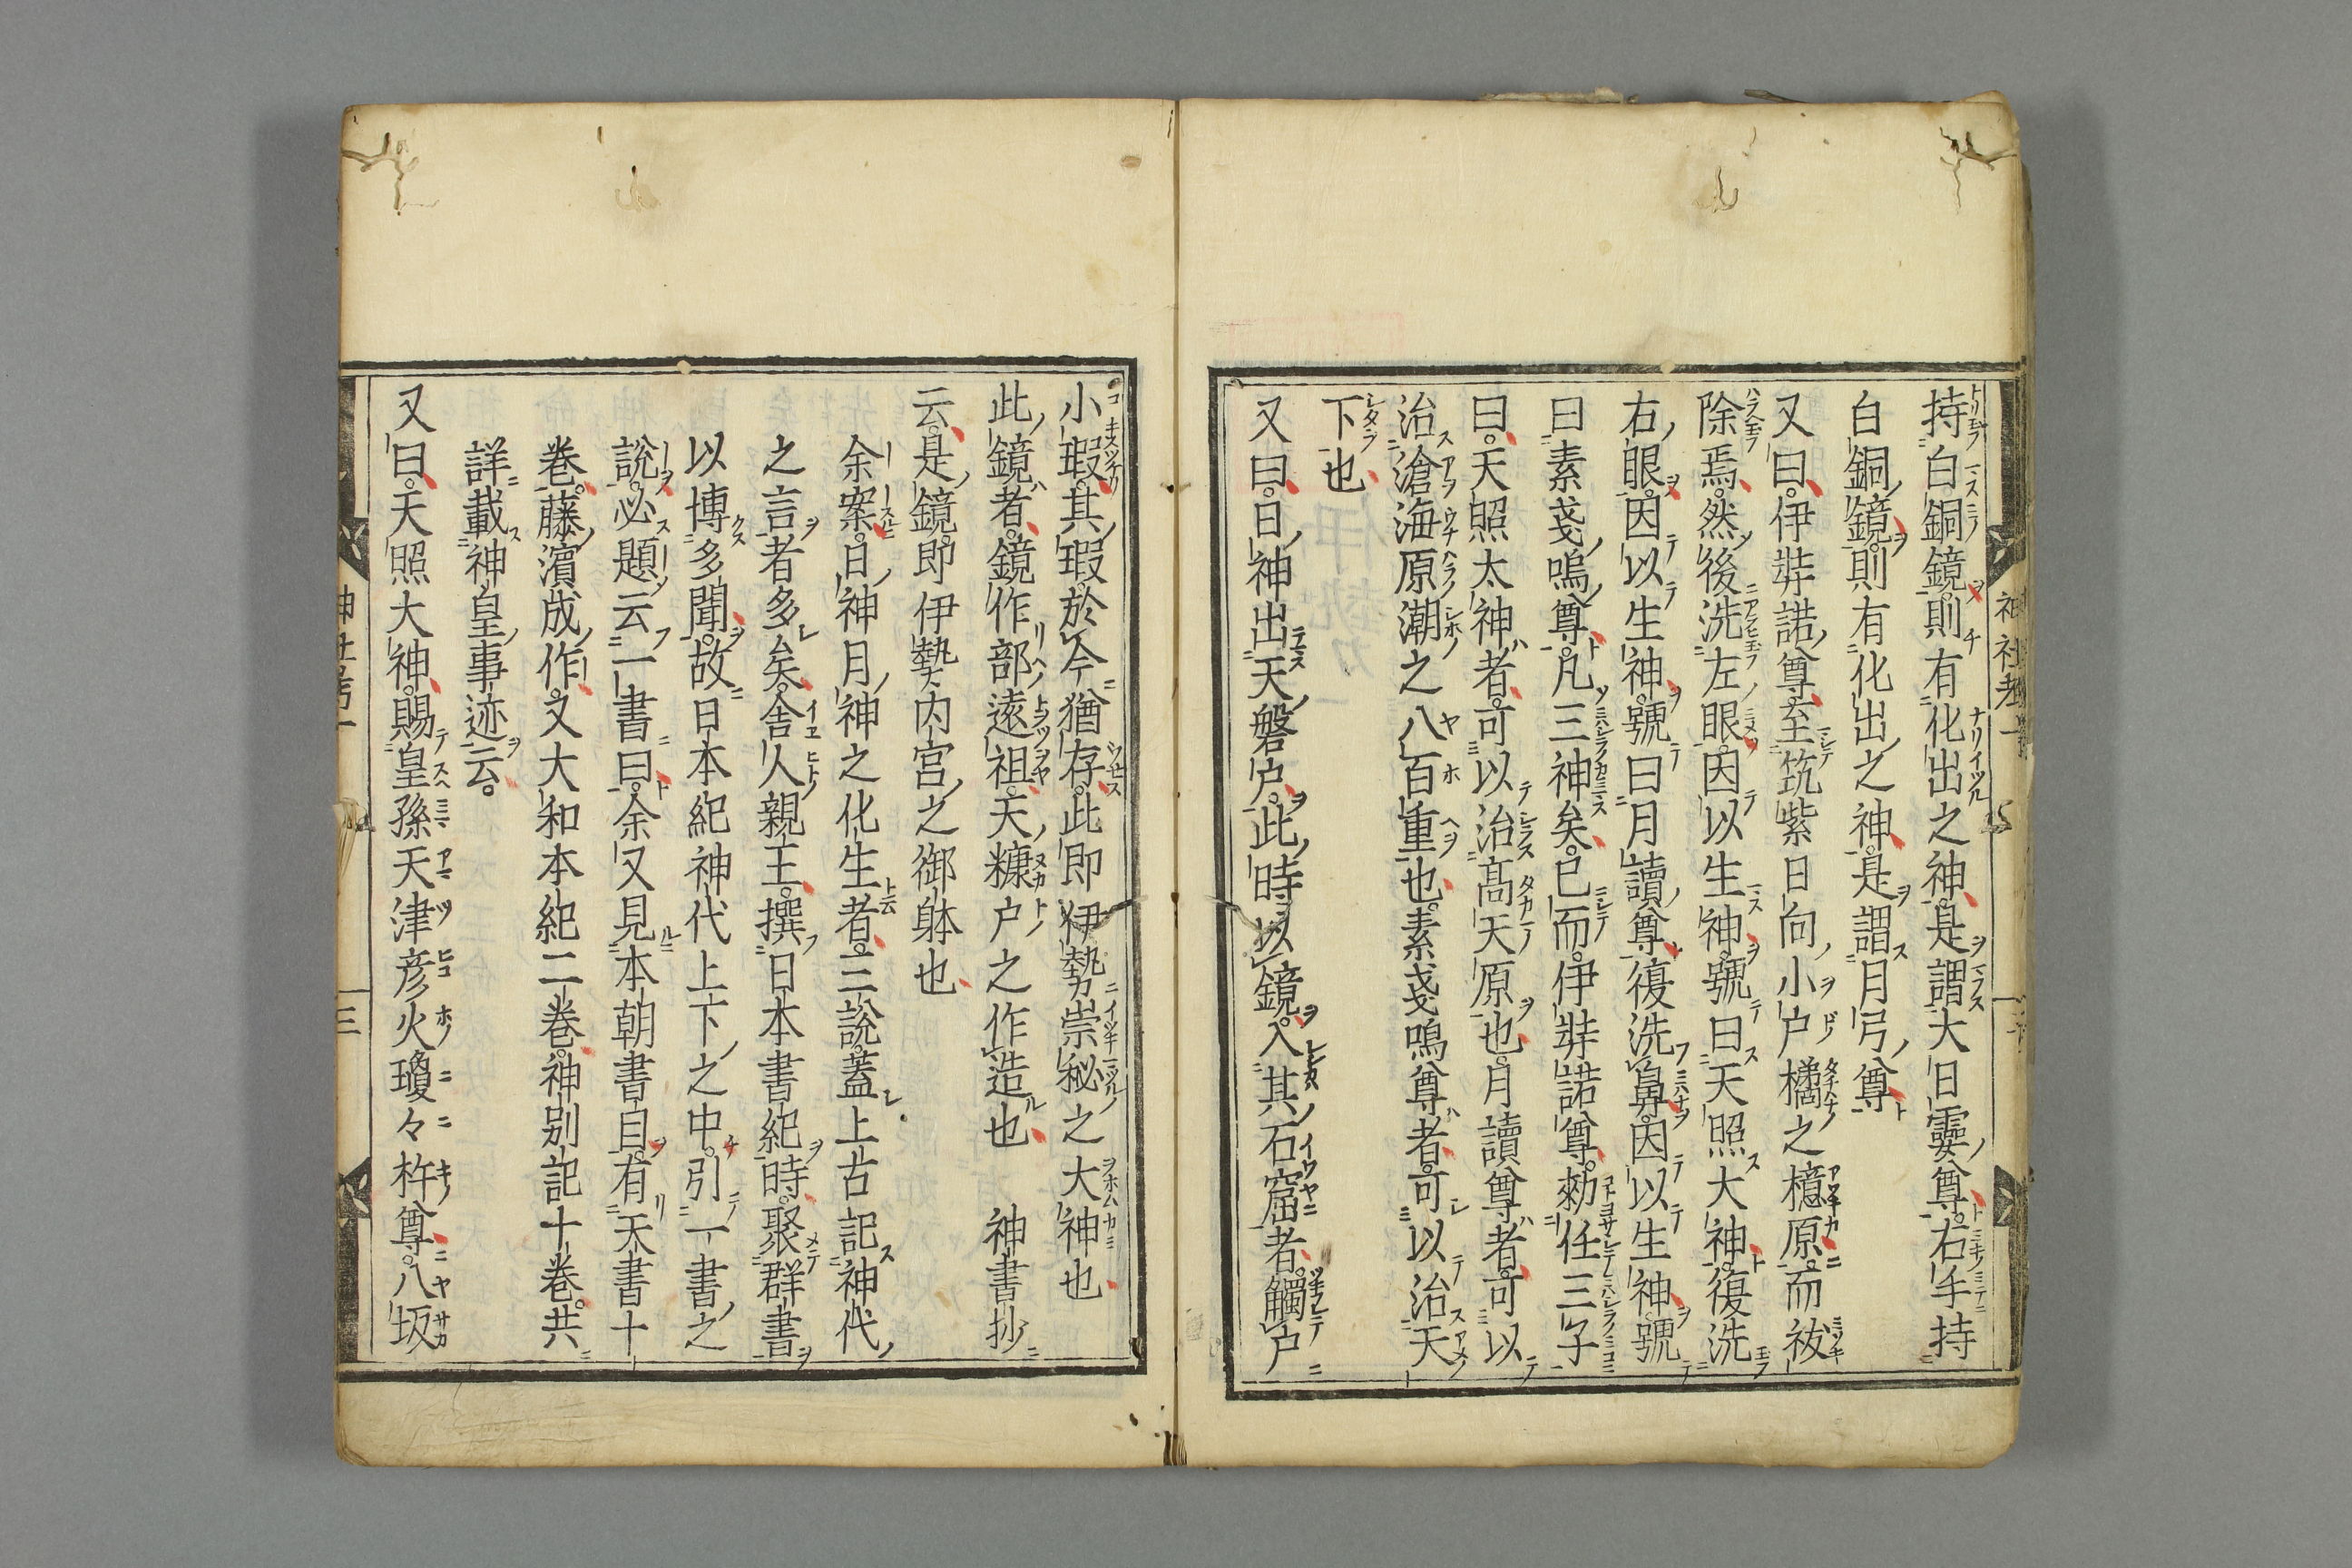 持白銅鏡則有化出之神是謂大日孁尊右手持
白銅鏡則有化出之神是謂月弓尊
又曰伊弉諾尊至筑紫日向小戸橘之檍原而祓
除焉然後洗左眼因以生神號曰天照大神復洗
右眼因以生神號曰月讀尊復洗鼻因以生神號
曰素戔嗚尊凡三神矣已而伊弉諾尊勅任三子
曰天照太神者可以治高天原也月讀尊者可以
治滄海原潮之八百重也素戔嗚尊者可以治天
下也
又曰日神出天磐戸此時以鏡入其石窟者觸戸
小瑕其瑕於今猶存此即伊勢崇秘之大神也
此鏡者鏡作部遠祖天糠戸之作造也 神書抄
云是鏡即伊勢内宮之御躰也
余案日神月神之化生者三說蓋上古記神代
之言者多矣舎人親王撰日本書紀時聚群書
以博多聞故日本紀神代上下之中引一書之
說必題云一書曰余又見本朝書目有天書十
巻藤濱成作又大和本紀二巻神別記十巻共
詳載神皇事迹云
又曰天照大神賜皇孫天津彦火瓊々杵尊八坂
神社考一
三